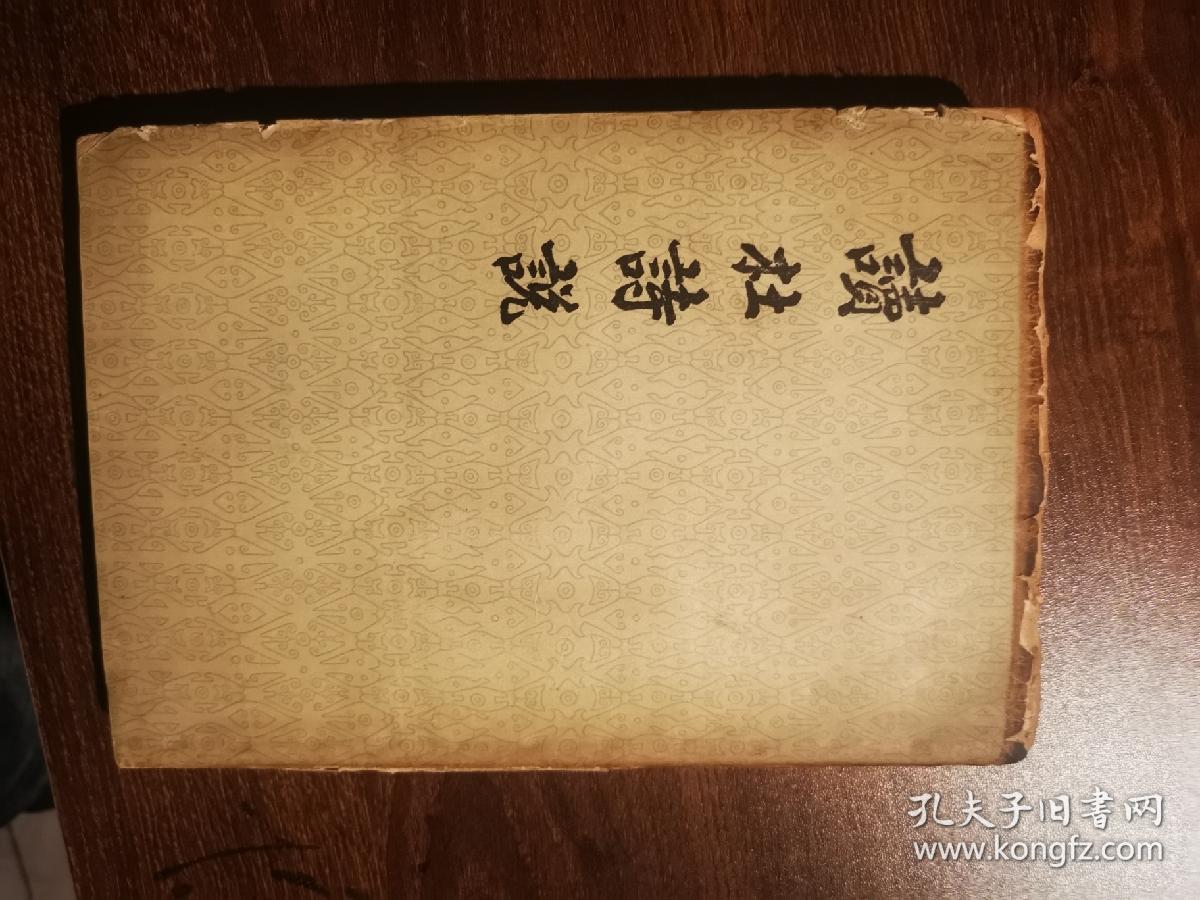 讀杜詩說
孔夫子旧书网
www.kongfz.com